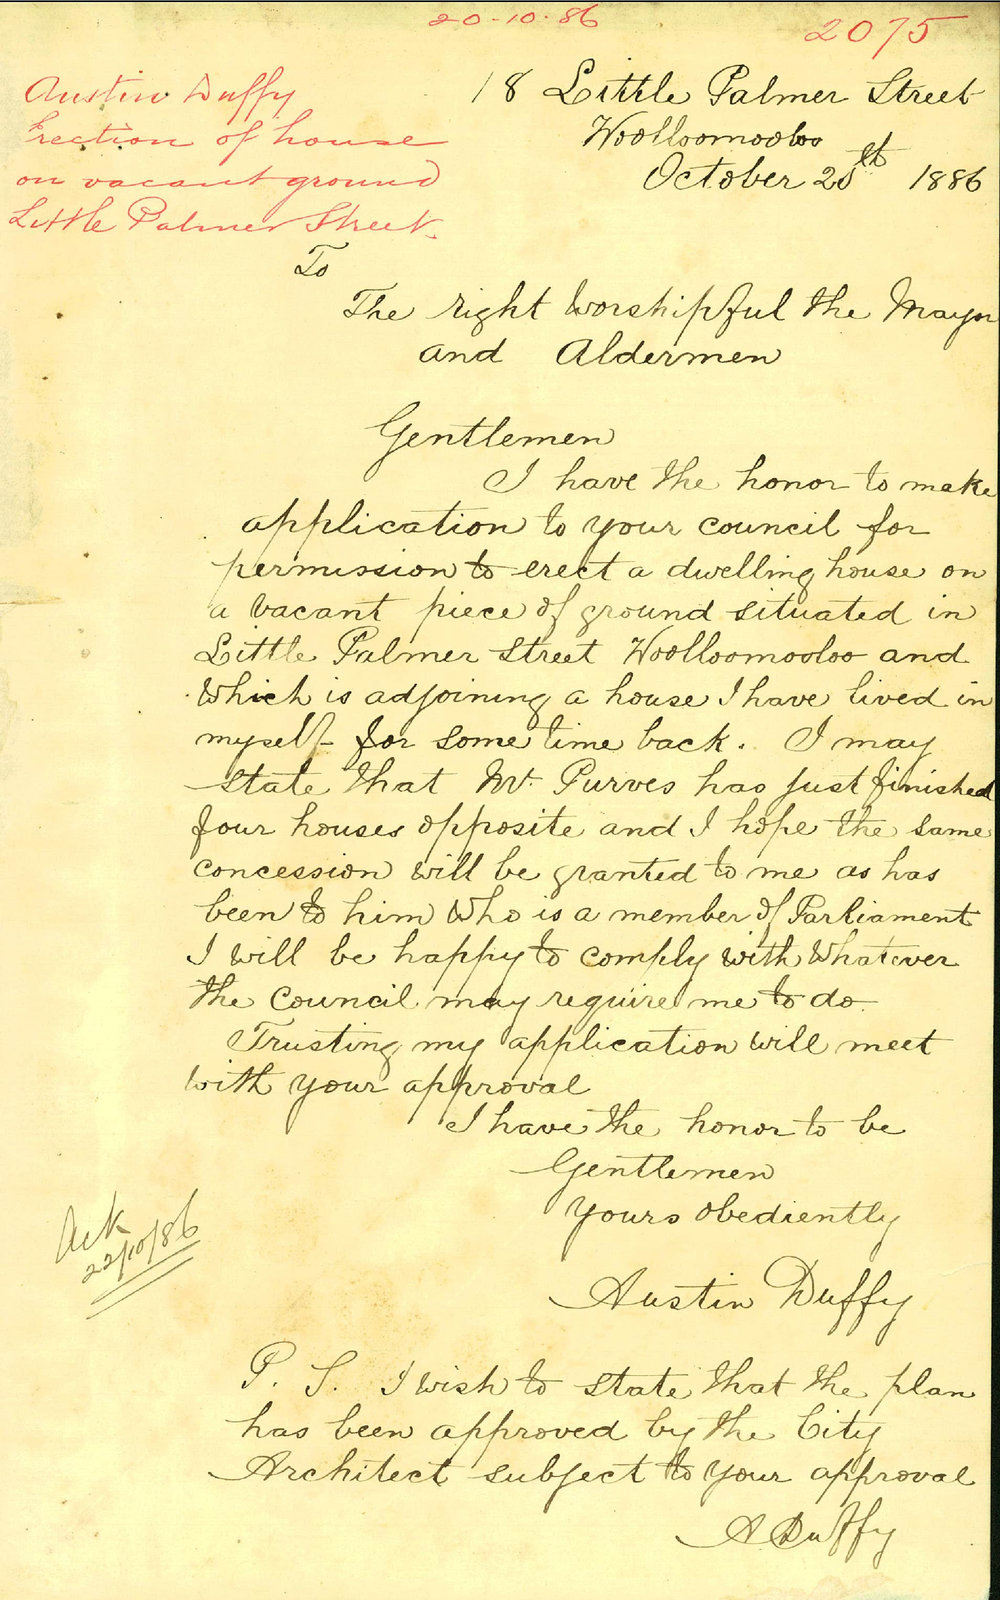 20-10-86
2075
Austin Duffy
Erection of house
on vacant ground
Little Palmer Street.
18 Little Palmer Street
Woolloomooloo
October 20th 1886
To
The right worshipful the Mayor
and Aldermen
Gentlemen
I have the honor to make
application to your council for
permission to erect a dwelling house on
a vacant piece of ground situated in
Little Palmer Street Woolloomooloo and
which is adjoining a house I have lived in
myself for some time back. I may
state that Mr. Purves has just finished
four houses opposite and I hope the same
concession will be granted to me as has
been to him who is a member of Parliament
I will be happy to comply with whatever
the Council may require me to do.
Trusting my application will meet
with your approval
I have the honor to be
Gentlemen
Yours obediently
Austin Duffy
Ack
22/10/86
P. S. I wish to state that the plan
has been approved by the City
Architect subject to your approval
A Duffy